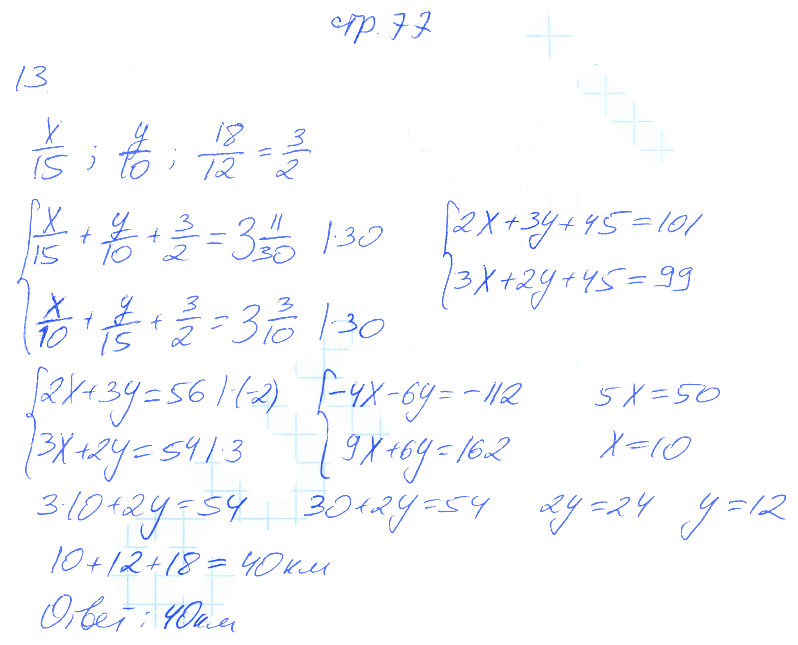 стр. 77
13
x/15 ; y/10 ; 18/12 = 3/2
{ x/15 + y/10 + 3/2 = 3 11/30 |·30
{ x/10 + y/15 + 3/2 = 3 3/10 |·30
{ 2x+3y+45=101
{ 3x+2y+45=99
{ 2x+3y=56 |·(-2)
{ 3x+2y=54 |·3
{ -4x-6y=-112
{ 9x+6y=162
5x=50
x=10
3·10+2y=54 30+2y=54 2y=24 y=12
10+12+18=40км
Ответ: 40км